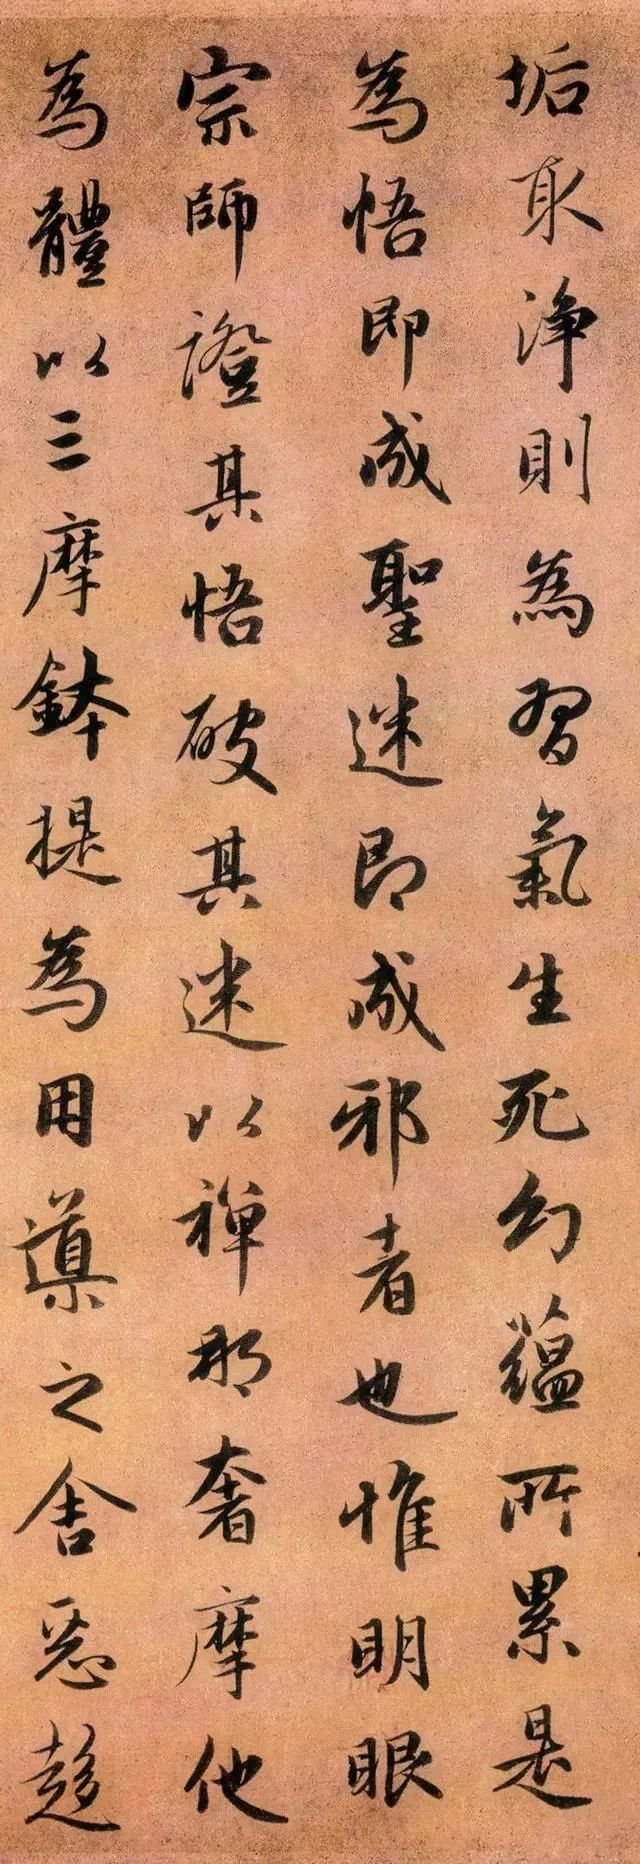 垢取淨則為習氣生死幻蘊所累是
為悟即成聖迷即成邪者也惟明眼
宗師證其悟破其迷以禪那奢摩他
為體以三摩鉢提為用導之舍惡趍